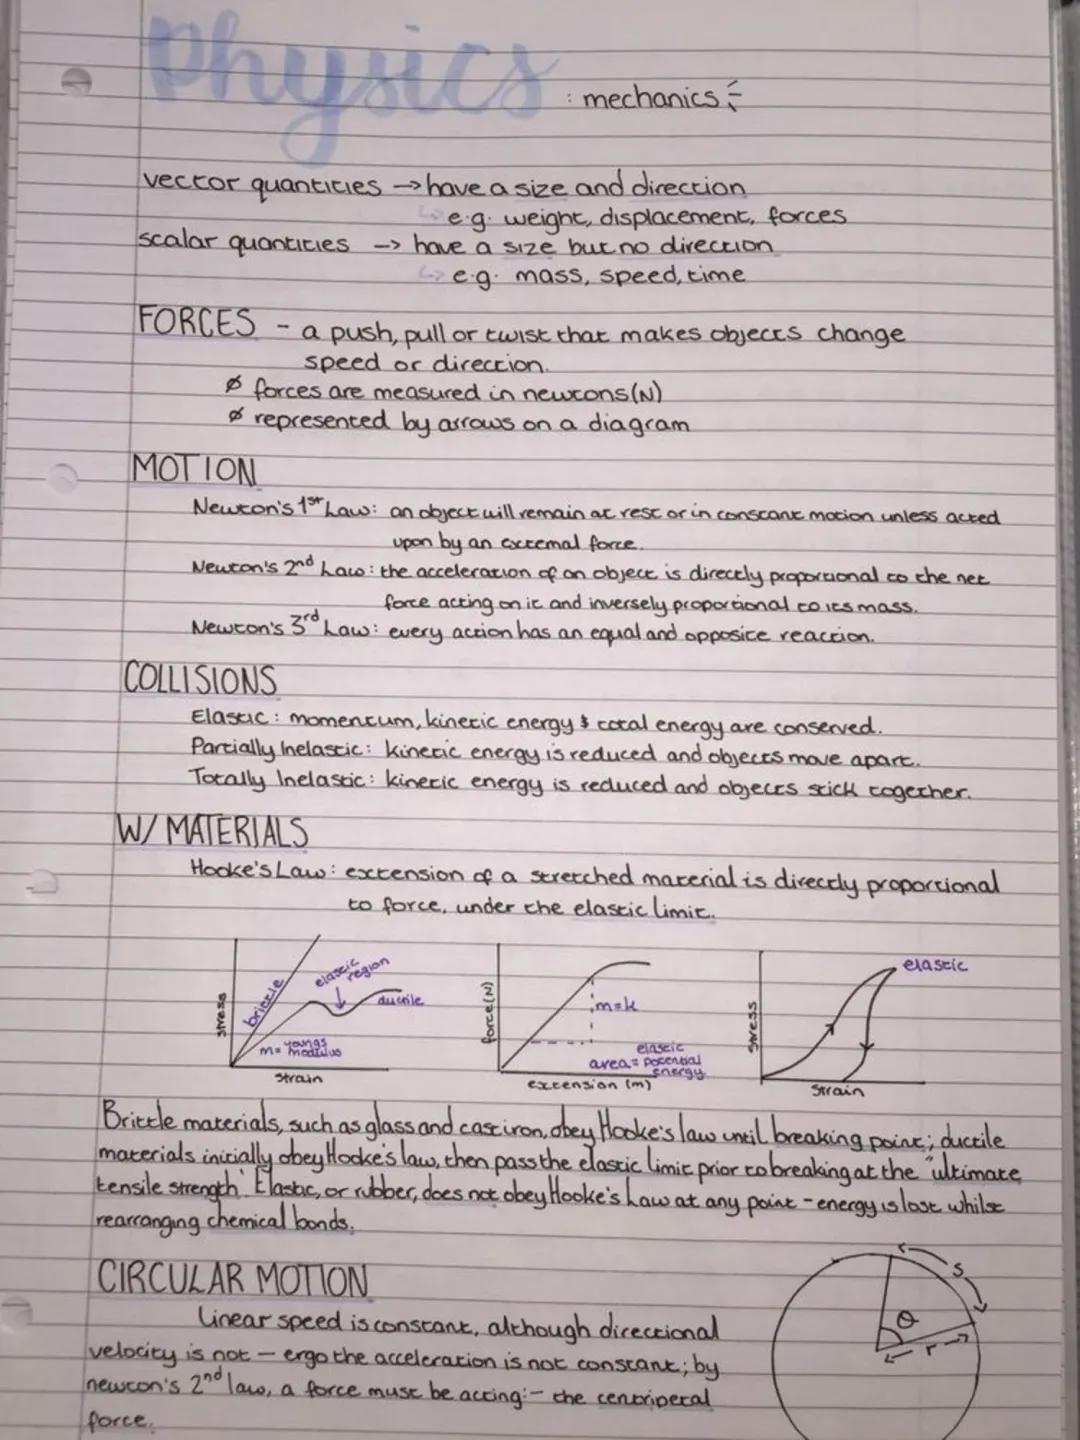 Physics : mechanics :-
vector quantities → have a size and direction
↳ e.g. weight, displacement, forces
scalar quantities --> have a size but no direction
↳ e.g. mass, speed, time
FORCES - a push, pull or twist that makes objects change
speed or direction.
ø forces are measured in newtons (N)
ø represented by arrows on a diagram
MOTION
Newton's 1st Law: an object will remain at rest or in constant motion unless acted
upon by an external force.
Newton's 2nd Law: the acceleration of an object is directly proportional to the net
force acting on it and inversely proportional to its mass.
Newton's 3rd Law: every action has an equal and opposite reaction.
COLLISIONS
Elastic: momentum, kinetic energy & total energy are conserved.
Partially Inelastic: kinetic energy is reduced and objects move apart.
Totally Inelastic: kinetic energy is reduced and objects stick together.
W/ MATERIALS
Hooke's Law: extension of a stretched material is directly proportional
to force, under the elastic limit.
stress
brittle
elastic
region
ductile
m= youngs
modulus
strain
force (N)
m=k
elastic
area = potential
energy
extension (m)
stress
elastic
strain
Brittle materials, such as glass and cast iron, obey Hooke's law until breaking point; ductile
materials initially obey Hooke's law, then pass the elastic limit prior to breaking at the "ultimate
tensile strength'. Elastic, or rubber, does not obey Hooke's Law at any point - energy is lost whilst
rearranging chemical bonds.
CIRCULAR MOTION
Linear speed is constant, although directional
velocity is not — ergo the acceleration is not constant; by
newton's 2nd law, a force must be acting:- the centripetal
force.
s
θ
r